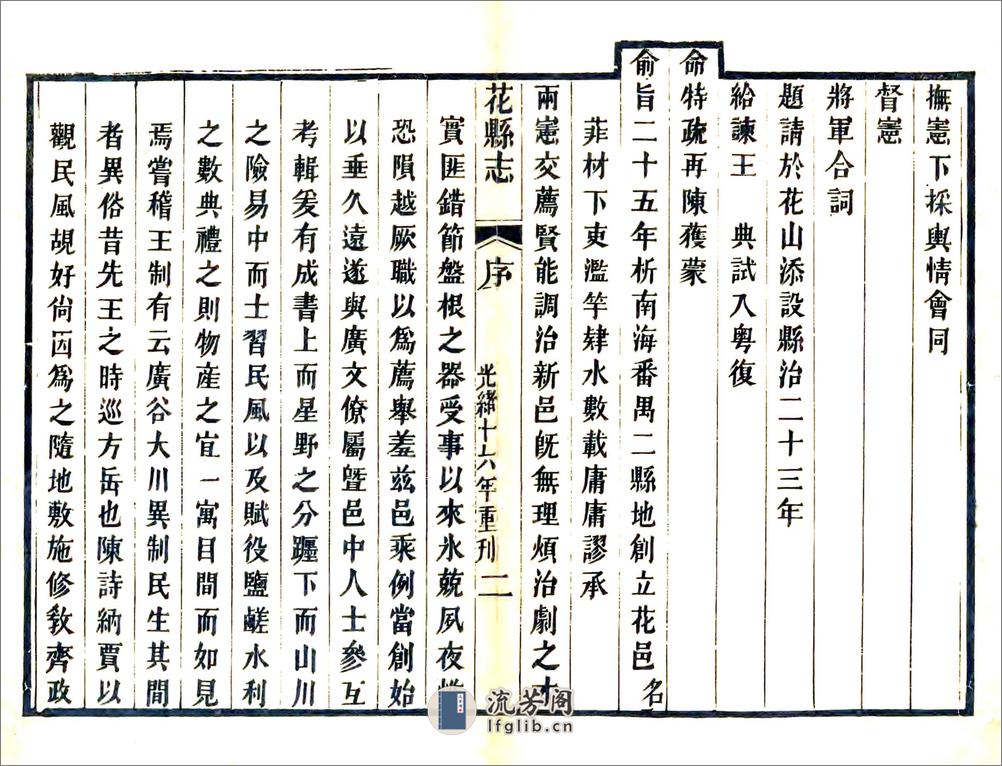 撫憲下採輿情會同
督憲
將軍合詞
題請於花山添設縣治二十三年
給諫王 典試入粵復
命特疏再陳獲蒙
俞旨二十五年析南海番禺二縣地創立花邑名
菲材下吏濫竽肄水數載庸庸謬承
兩憲交薦賢能調治新邑旣無理煩治劇之才
花縣志 序 光緒十六年重刊 二
實匪錯節盤根之器受事以來氷兢夙夜
恐隕越厥職以爲薦舉羞茲邑乘例當創始
以垂久遠遂與廣文僚屬曁邑中人士參互
考輯爰有成書上而星野之分躔下而山川
之險易中而士習民風以及賦役鹽鹺水利
之數典禮之則物産之宜一寓目間而如見
焉嘗稽王制有云廣谷大川異制民生其間
者異俗昔先王之時巡方岳也陳詩納賈以
觀民風覘好尙因爲之隨地敷施修敎齊政
流芳阁
lfglib.cn